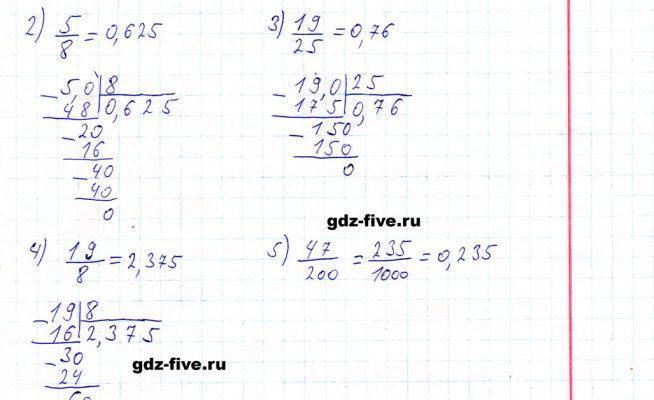 2) 5/8 = 0,625
5,0 | 8
48 | 0,625
20
16
40
40
0
3) 19/25 = 0,76
19,0 | 25
175 | 0,76
150
150
0
gdz-five.ru
4) 19/8 = 2,375
19 | 8
16 | 2,375
30
24
5) 47/200 = 235/1000 = 0,235
gdz-five.ru